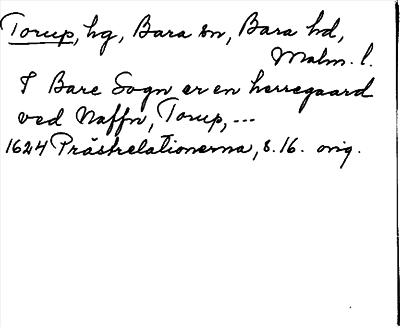 Torup, hg, Bara sn, Bara hd,
Malm. l.
I Bare Sogn er en herregaard
ved Naffn, Torup, ...
1624 Prästrelationerna, s. 16. orig.